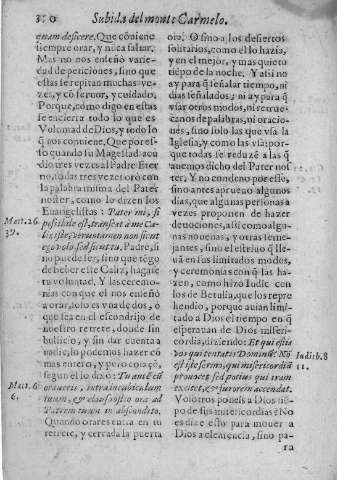 370 Subida del monte Carmelo.
enam deficere. Que cōuiene
siempre orar, y nūca faltar.
Mas no nos enseñò varie-
dad de peticiones, sino que
estas se repitan muchas ve-
zes, y cō feruor, y cuidado.
Porque, como digo en estas
se encierra todo lo que es
Volūtad de Dios, y todo lo
q̄ nos conuiene. Que por es-
so quando su Magestad acu
dio tres vezes al Padre Eter
no, todas tres vezes orò con
la palabra misma del Pater
noster, como lo dizen los
Euangelistas: Pater mi, si
possibile est, transeat à me Ca-
lix iste, veruntamen non sicut
ego volo sed sicut tu. Padre, si
no puede ser, sino que tẽgo
de beber este Caliz, hagase
tu voluntad. Y las ceremo-
nias con que el nos enseñò
a orar, solo es vna de dos, ò
que sea en el escondrijo de
nuestro retrete, donde sin
bullicio, y sin dar cuenta a
nadie, lo podemos hazer cō
mas entero, y puro coraçō,
segun el lo dixo: Tu autẽ cũ
oraueris, intra in cubiculum
tuum, & clauso ostio ora
Patrem tuum in abscondito.
Quando orares entra en tu
retrete, y cerrada la puerta
Matt. 26.
39.
Matt. 6.
6.
ora. O sino a los desiertos
solitarios, como el lo hazia,
y en el mejor, y mas quieto
tiẽpo de la noche. Y assi no
ay para q̄ señalar tiempo, ni
dias señalados; ni ay para q̄
vsar otros modos, ni retrue-
canos de palabras, ni oracio-
nes, sino solo las que vsa la
Iglesia, y como las vsa; por-
que todas se reduzē a las q̄
auemos dicho del Pater nos
ter. Y no condeno por esso,
sino antes aprueuo algunos
dias, que algunas personas a
vezes proponen de hazer
deuociones, assi como algu-
nas nouenas, y otras seme-
jantes, sino el estriuo q̄ lle-
uā en sus limitados modos,
y ceremonias con q̄ las ha-
zen, como hizo Iudic con
los de Betulia, que los repre
hendio, porque auian limi-
tado a Dios el tiempo en q̄
esperauan de Dios miseri-
cordia, diziendo: Et qui estis
vos qui tentatis Dominū? Nō
est iste sermo, qui misericordiā
prouocet sed potius qui iram
excitet, & furorem accendat.
Vosotros poneis a Dios tiē-
po de sus misericordias? No
es dize esto para mouer a
Dios a clemencia, sino pa-
ra
Iudith. 8
11.